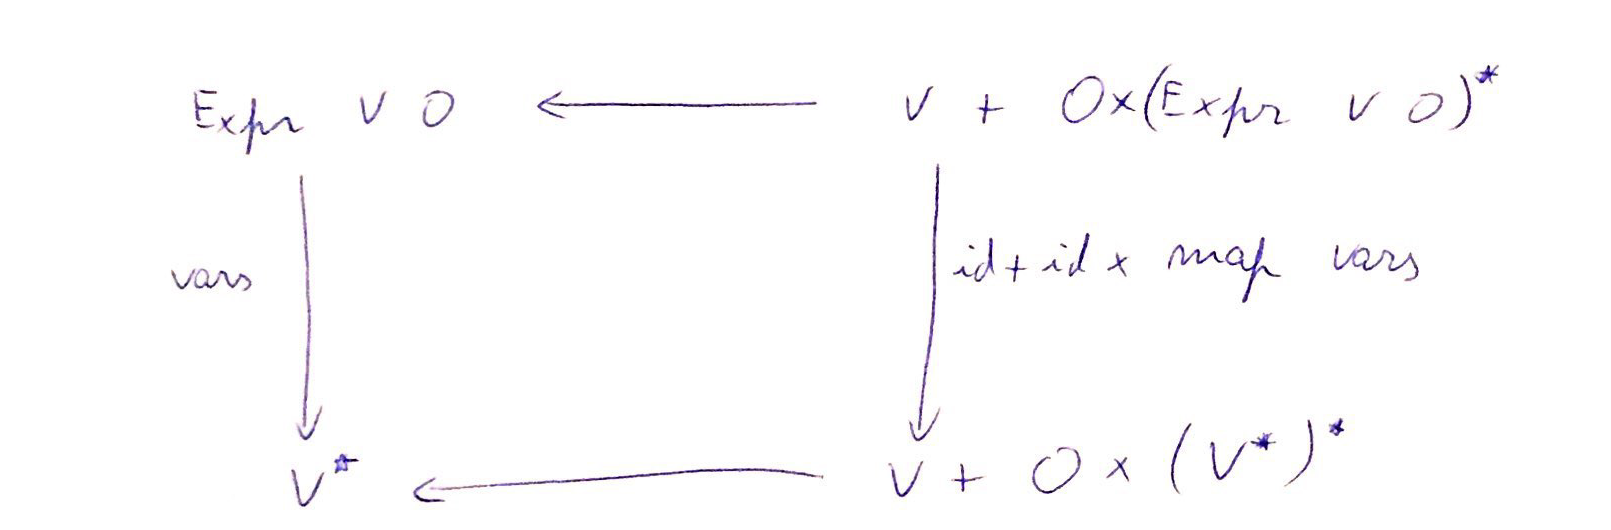 Expr V O ← V + O×(Expr V O)*
vars id + id × map vars
V* ← V + O × (V*)*